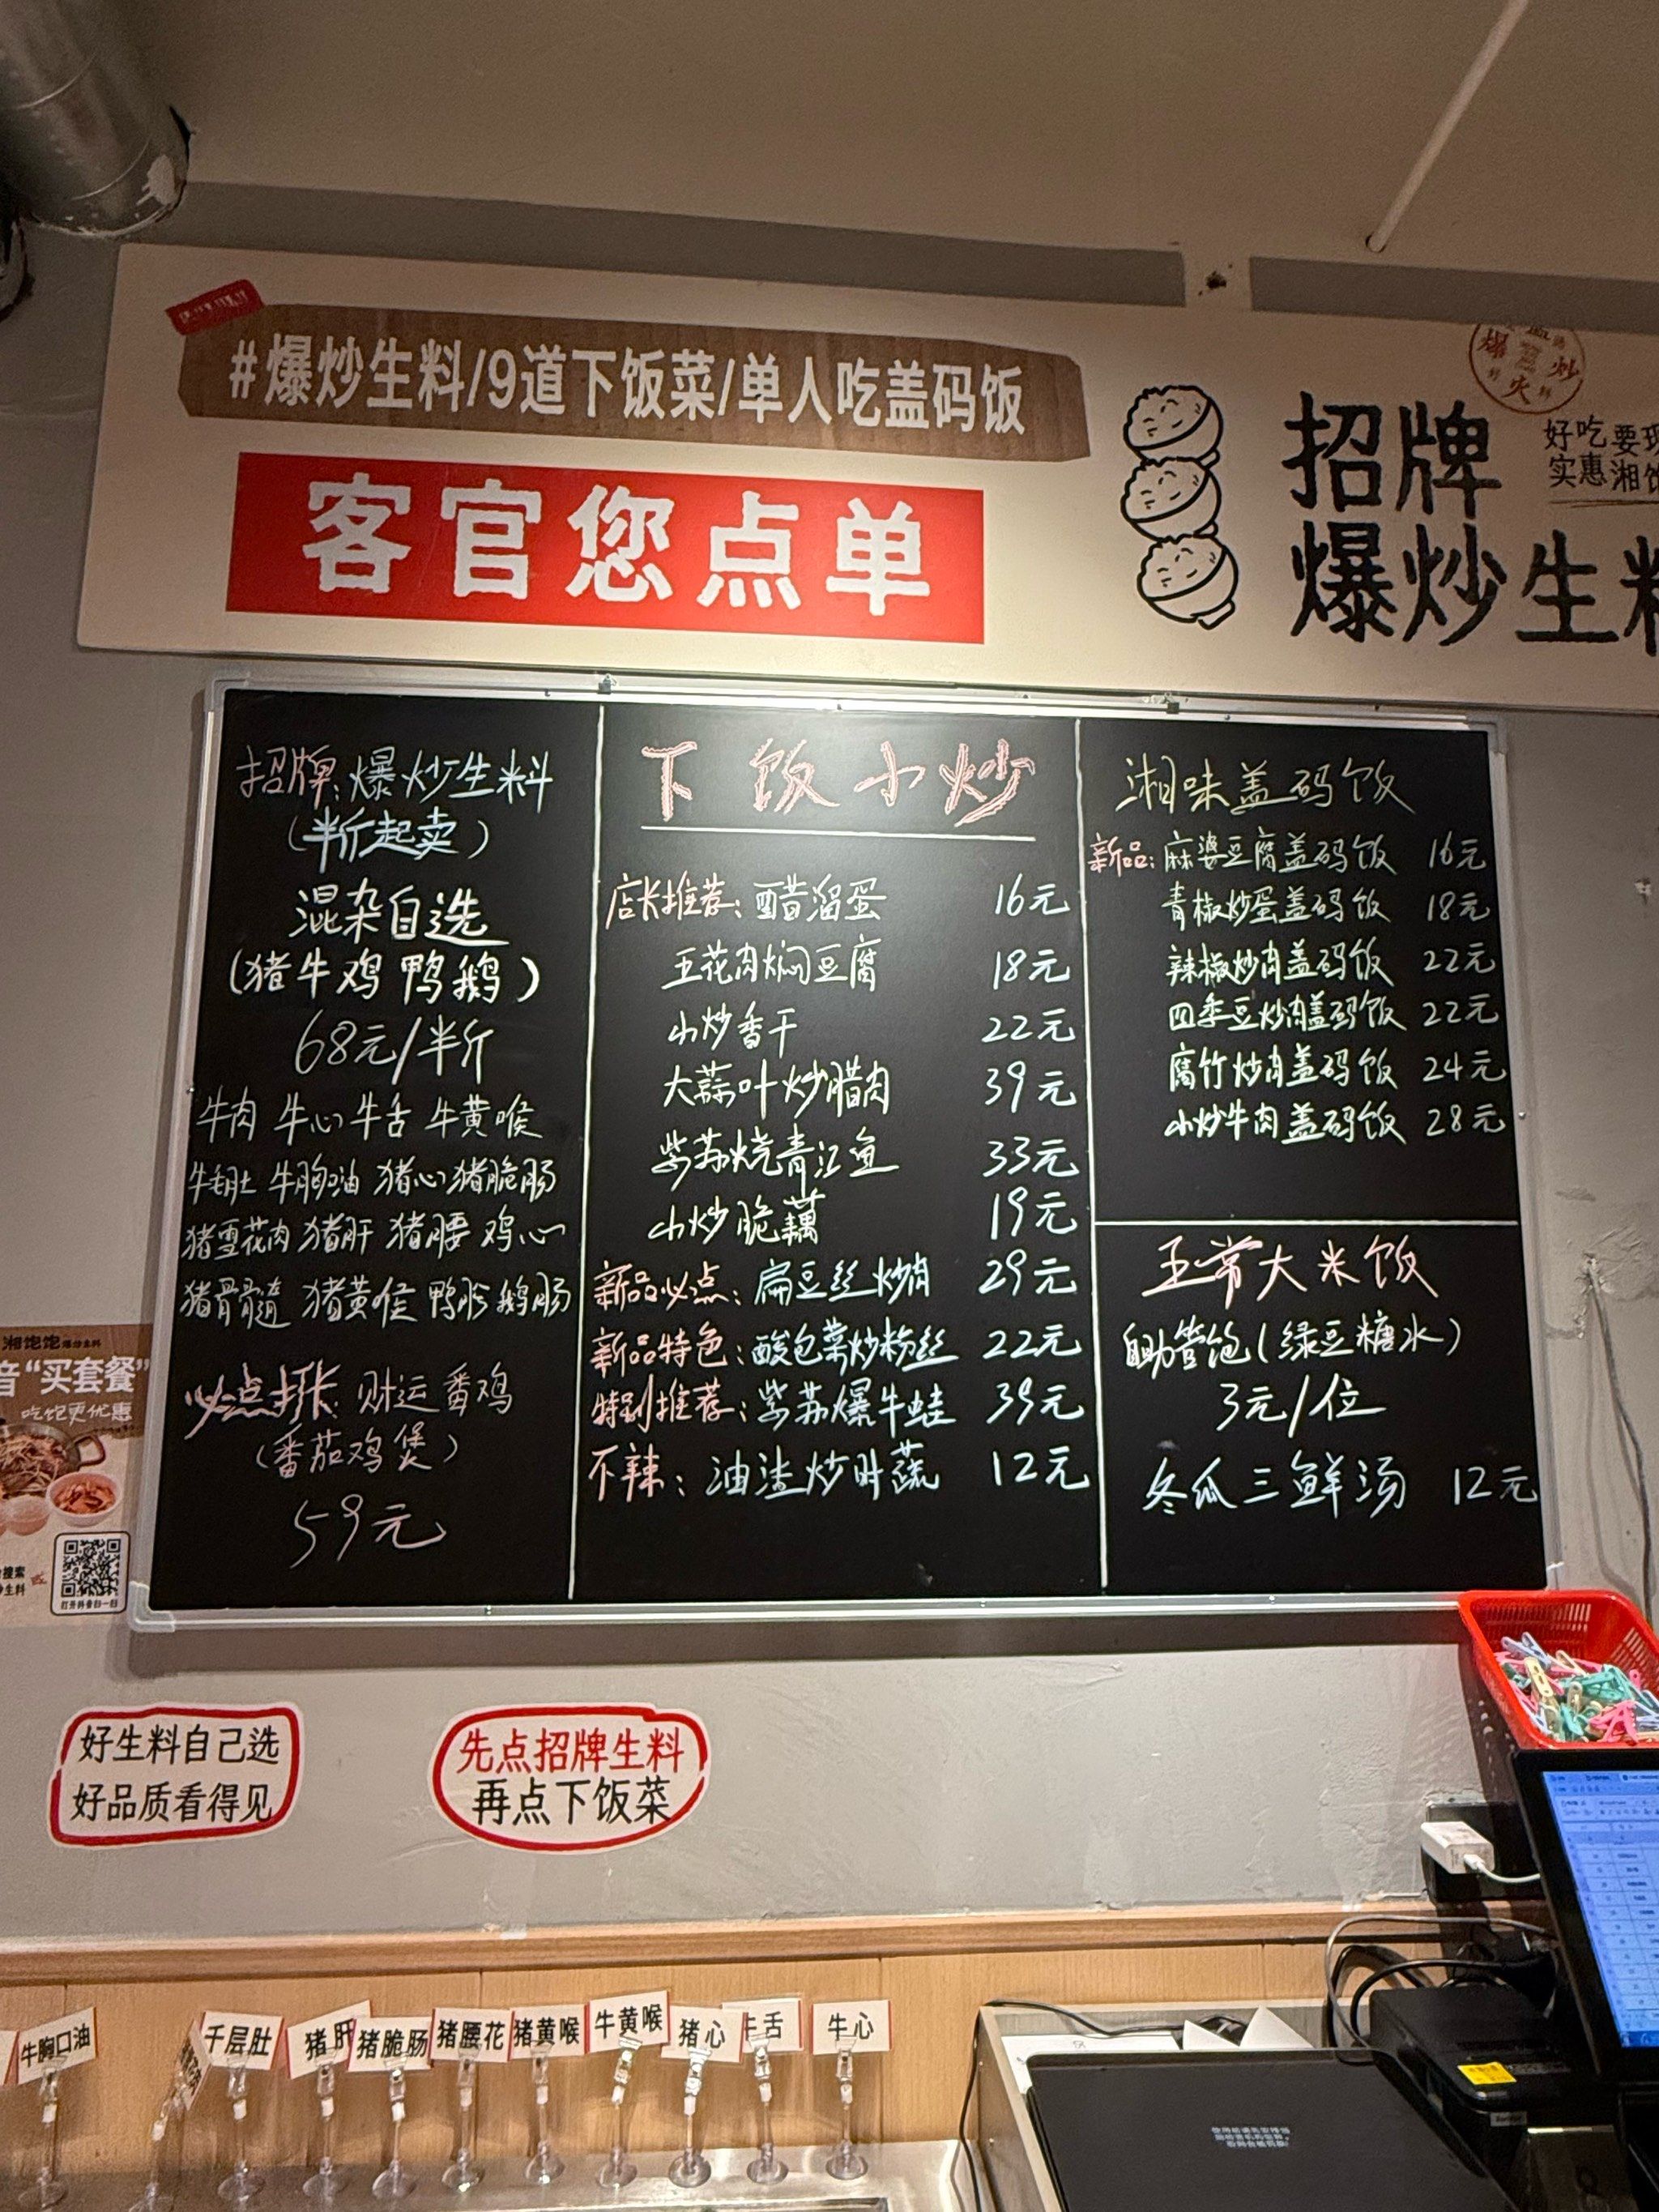 #爆炒生料/9道下饭菜/单人吃盖码饭
客官您点单
爆炒
火
招牌
好吃要现
实惠湘饱
爆炒生料
招牌:爆炒生料
(半斤起卖)
混杂自选
(猪牛鸡鸭鹅)
68元/半斤
牛肉 牛心 牛舌 牛黄喉
牛毛肚 牛胸油 猪心 猪脆肠
猪雪花肉 猪肝 猪腰 鸡心
猪骨髓 猪黄候 鸭胗 鹅肠
必点打卡:财运番鸡
(番茄鸡煲)
59元
下饭小炒
店长推荐:醋溜蛋 16元
五花肉焖豆腐 18元
小炒香干 22元
大蒜叶炒腊肉 39元
紫苏烧青江鱼 33元
小炒脆藕 19元
新品必点:扁豆丝炒肉 29元
新品特色:酸包菜炒粉丝 22元
特别推荐:紫苏爆牛蛙 39元
不辣:油渣炒时蔬 12元
湘味盖码饭
新品:麻婆豆腐盖码饭 16元
青椒炒蛋盖码饭 18元
辣椒炒肉盖码饭 22元
四季豆炒肉盖码饭 22元
腐竹炒肉盖码饭 24元
小炒牛肉盖码饭 28元
五常大米饭
自助管饱(绿豆糖水)
3元/位
冬瓜三鲜汤 12元
湘饱饱爆炒生料
音“买套餐”
吃饱更优惠
搜索
炒生料
打开抖音扫一扫
好生料自己选
好品质看得见
先点招牌生料
再点下饭菜
牛胸口油
千层肚
猪肝
猪脆肠
猪腰花
猪黄喉
牛黄喉
猪心
牛舌
牛心